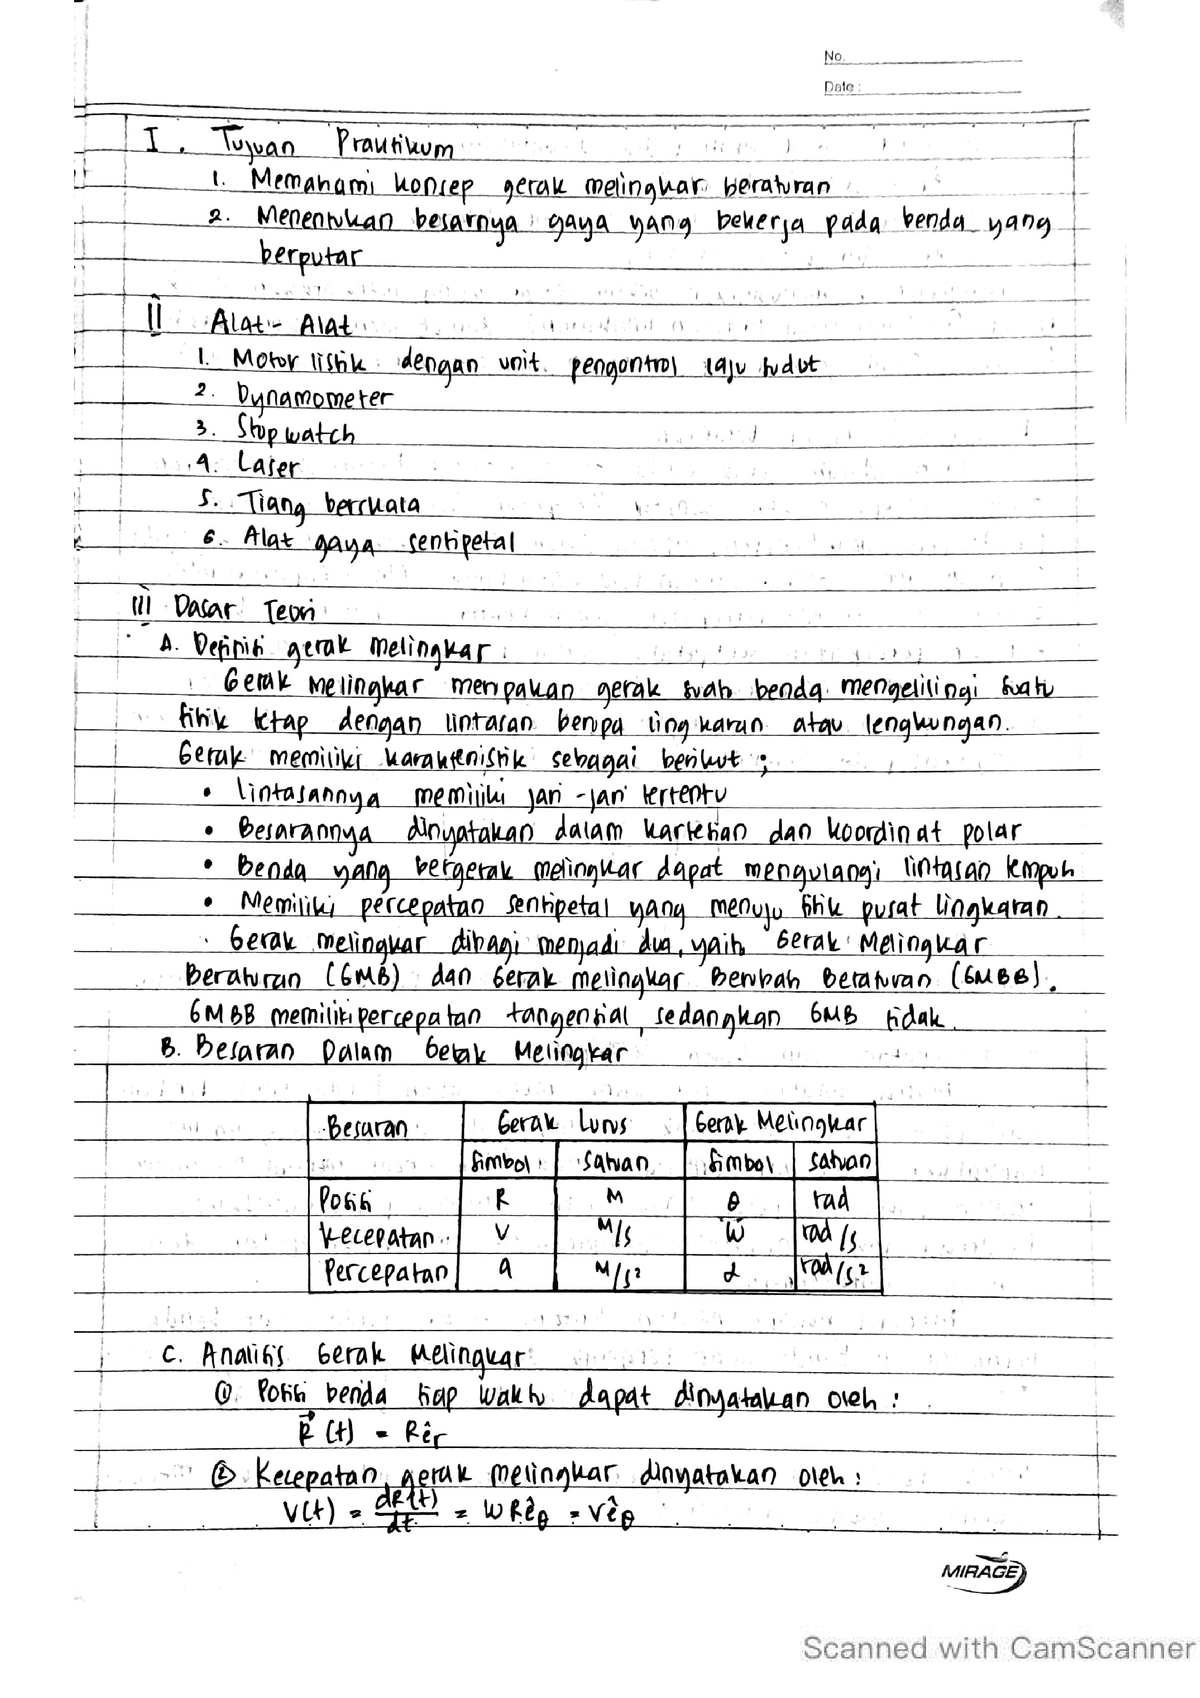 No.
Date :
I. Tujuan Praktikum
1. Memahami konsep gerak melingkar beraturan
2. Menentukan besarnya gaya yang bekerja pada benda yang
berputar
II Alat - Alat
1. Motor listik dengan unit pengontrol laju sudut
2. Dynamometer
3. Stopwatch
4. Laser
5. Tiang berskala
6. Alat gaya sentipetal
III Dasar Teori
A. Definisi gerak melingkar
Gerak Melingkar merupakan gerak suatu benda mengelilingi suatu
titik tetap dengan lintasan berupa lingkaran atau lengkungan.
Gerak memiliki karakteristik sebagai berikut ;
• lintasannya memiliki jari-jari tertentu
• Besarannya dinyatakan dalam kartesian dan koordinat polar
• Benda yang bergerak melingkar dapat mengulangi lintasan tempuh
• Memiliki percepatan sentipetal yang menuju titik pusat lingkaran.
Gerak melingkar dibagi menjadi dua, yaitu Gerak Melingkar
Beraturan (GMB) dan Gerak melingkar Berubah Beraturan (GMBB).
GMBB memiliki percepatan tangensial, sedangkan GMB tidak.
B. Besaran Dalam Gerak Melingkar
Besaran Gerak Lurus Gerak Melingkar
Simbol Satuan Simbol Satuan
Posisi R M θ rad
Kecepatan V M/s ω rad/s
Percepatan a M/s² α rad/s²
C. Analisis Gerak Melingkar
① Posisi benda tiap waktu dapat dinyatakan oleh :
R⃗ (t) = Rêr
② Kecepatan gerak melingkar dinyatakan oleh :
V(t) = dR(t)/dt = ωRêθ = Vêθ
MIRAGE
Scanned with CamScanner